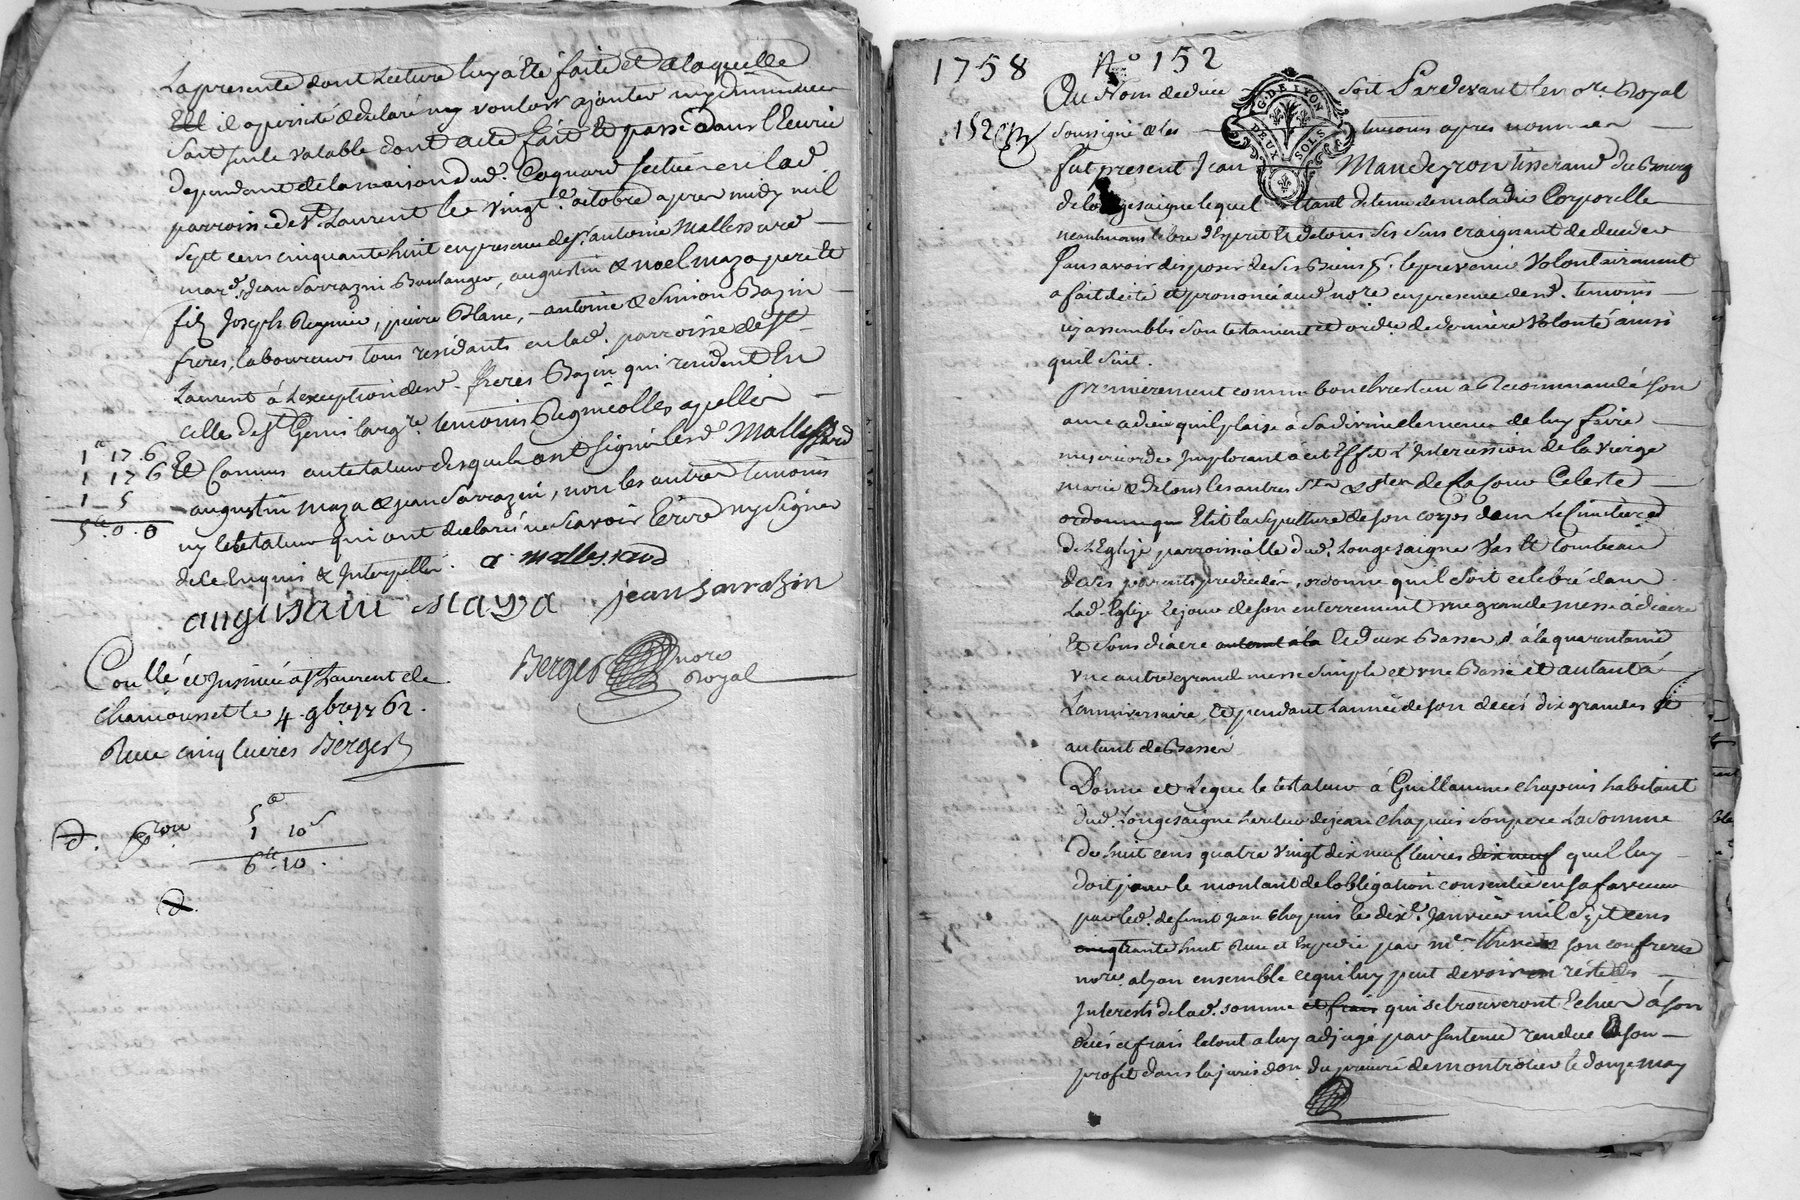 La presente dont Lecture luy a été faite et a laquelle
il a persisté & declaré ny vouloir ajouter ny diminuer
soit seule valable dont acte fait et passé dans l'Ecurie
dependante de la maison dud. Coquard scituée en lad.
parroisse de St Laurent le vingt e. octobre apres midy mil
sept cens cinquante huit en presence de sr. antoine Mallessard
mard. Jean Sarrazin Boulanger, augustin & noel maza pere et
fils Joseph Regnier, pierre Blanc, antoine & Simon Bazin
freres, laboureurs tous residants en lad. parroisse de st
Laurent à L'exception desd. freres Bazin qui resident En
celles de st Genis largre. temoins Regnicolles apellés
1 17 6 Et Connus au testateur desquels ont signé lesd. Mallessard
1 17 6 augustin maza & jean Sarrazin, non les autres temoins
1 5
5 tt 0 0
ny le testateur qui ont declaré ne scavoir Ecrire ny signer
de ce Enquis & Interpellés. a mallessard
augustin Maza jean Sarrazin
Berger nore Royal
Conllé et Insinué a st Laurent de
chamousset le 4. 9bre 1762.
Reçu cinq livres Berger
5 tt
1 10 s
6 tt 10.
1758 No 152
G. DE LYON
DEUX SOLS
Au Nom de dieu soit Pardevant le nore. Royal
152e soussigné & les temoins apres nommés
fut present Jean Manderon tisserand du Bourg
de longesaigne lequel Etant detenu de maladie Corporelle
neantmoins libre d'Esprit Et de tous ses sens craignant de deceder
sans avoir disposer de ses Biens le prevenir volontairement
a fait dicté et prononcé aud. nore en presence desd. temoins
icy assemblés son testament et ordre de derniere volonté ainsi
quil suit.
premierement comme bon chrestien a Recommandé son
ame a dieu quil plaise à sa divine clemence de luy faire
misericorde Implorant à cet Effet L'Intercession de la vierge
marie & de tous les autres sts & stes de la Cour Celeste
ordonne que Elit la sepulture de son corps dans Le Cimetiere
de L'Eglize parroissialle dud. Longesaigne vas Et tombeau
de ses parents predecedés, ordonne quil soit celebré dans
Lad. Eglize Le jour de son enterrement une grande messe à diacre
Et sous diacre autant à la Et deux Basses, à la quarantaine
une autre grande messe simple et une Basse et autant à
L'anniversaire, Et pendant L'année de son decés dix grandes Et
autant de Basses
Donne et Legue le testateur à Guillaume chapuis habitant
dud. Longesaigne heritier de jean chapuis son pere La somme
de huit cens quatre vingt dix neuf livres dix neuf quil luy
doit pour le montant de l'obligation consentie en sa faveur
par led. defunt jean chapuis le dixe. Janvier mil sept cens
cinquante huit Reçue et Expedie par me son confrere
nore. alyon ensemble ce qui luy peut devoir en reste des
Interests de lad. somme et frais qui se trouveront Echus à son
decés et frais le tout a luy adjugé par sentence rendue à son
profit dans la jurisdon. du prieuré de montrotier le douze may